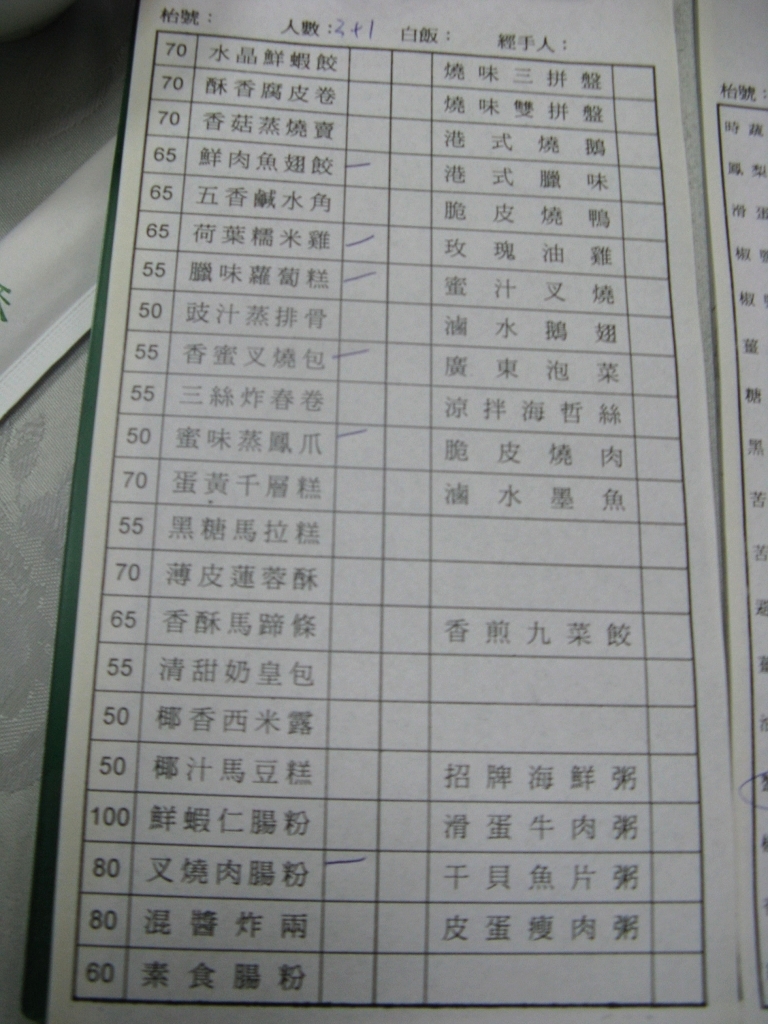 枱號： 人數：2+1 白飯： 經手人：
70 水晶鮮蝦餃 燒味三拼盤
70 酥香腐皮卷 燒味雙拼盤
70 香菇蒸燒賣 港式燒鵝
65 鮮肉魚翅餃 港式臘味
65 五香鹹水角 脆皮燒鴨
65 荷葉糯米雞 玫瑰油雞
55 臘味蘿蔔糕 蜜汁叉燒
50 豉汁蒸排骨 滷水鵝翅
55 香蜜叉燒包 廣東泡菜
55 三絲炸春卷 涼拌海哲絲
50 蜜味蒸鳳爪 脆皮燒肉
70 蛋黃千層糕 滷水墨魚
55 黑糖馬拉糕
70 薄皮蓮蓉酥
65 香酥馬蹄條 香煎九菜餃
55 清甜奶皇包
50 椰香西米露
50 椰汁馬豆糕 招牌海鮮粥
100 鮮蝦仁腸粉 滑蛋牛肉粥
80 叉燒肉腸粉 干貝魚片粥
80 混醬炸兩 皮蛋瘦肉粥
60 素食腸粉
枱號：
時蔬
鳳梨
滑蛋
椒
椒
薑
糖
黑
苦
苦